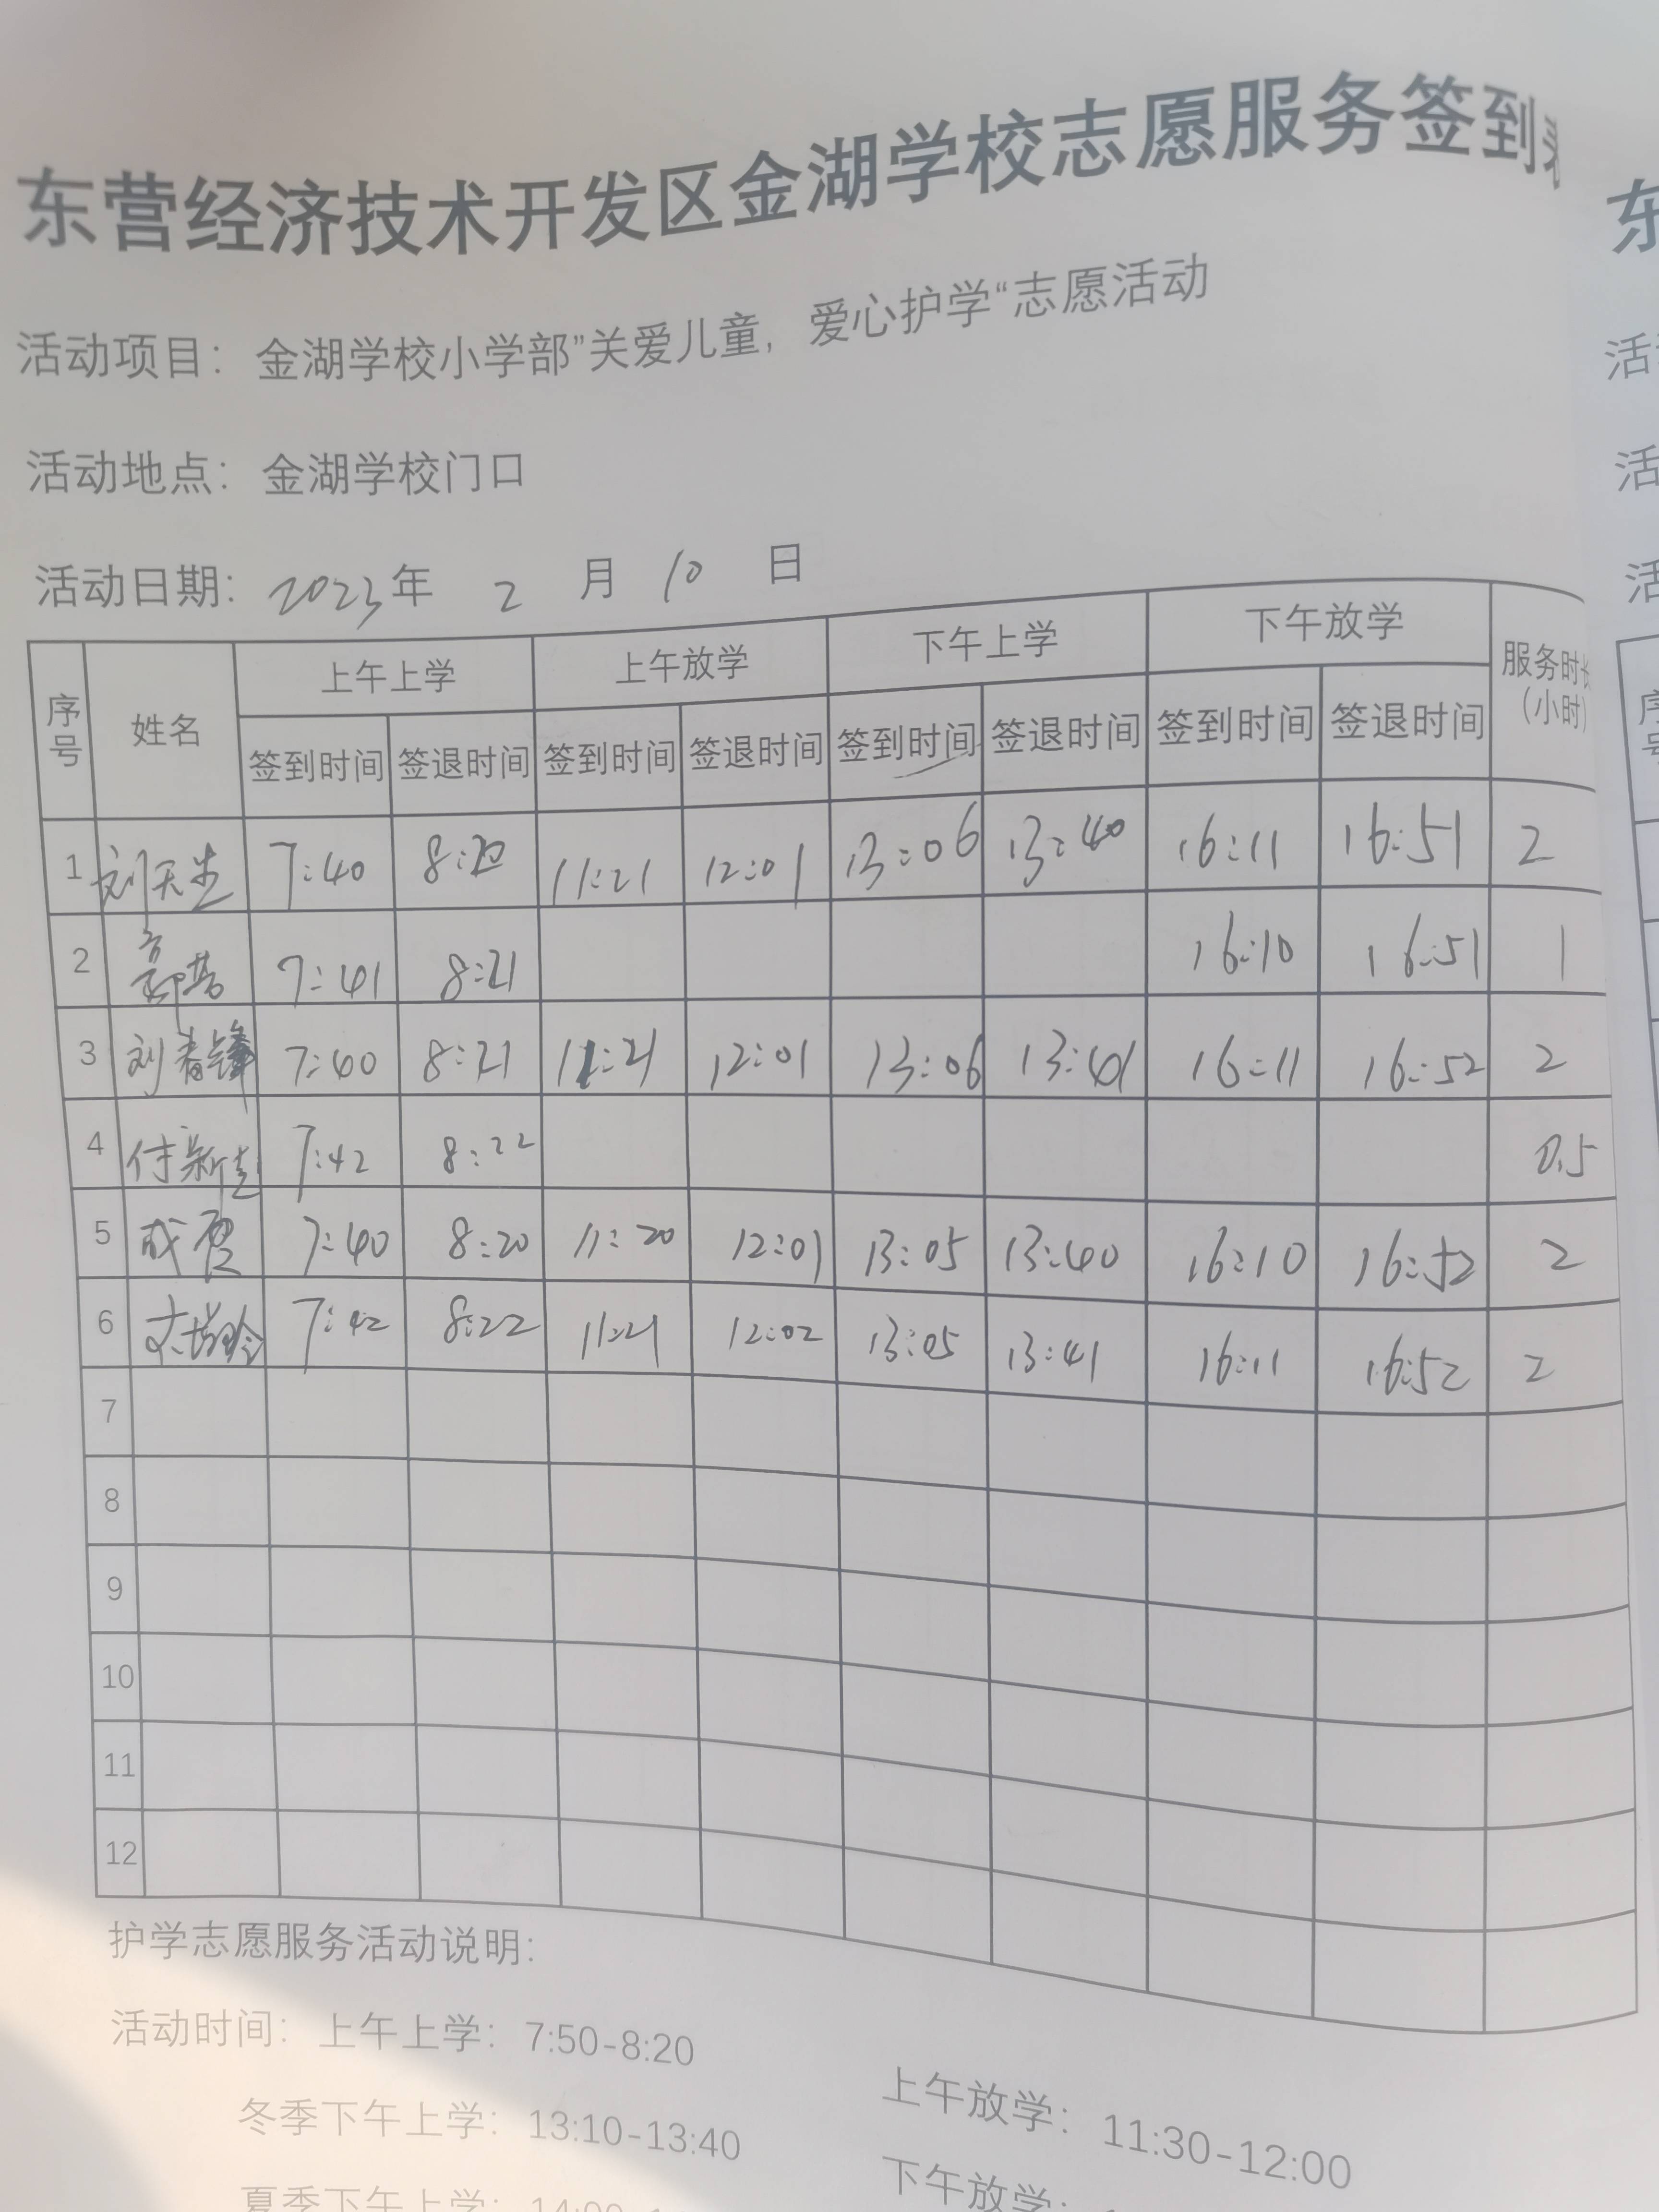 东营经济技术开发区金湖学校志愿服务签到
活动项目：金湖学校小学部”关爱儿童，爱心护学“志愿活动
活动地点：金湖学校门口
活动日期：2023年 2 月 10 日
序号 姓名 上午上学 上午放学 下午上学 下午放学 服务时长（小时）
签到时间 签退时间 签到时间 签退时间 签到时间 签退时间 签到时间 签退时间
1 7:40 8:20 11:21 12:01 13:06 13:40 16:11 16:51 2
2 7:41 8:21 16:10 16:51 1
3 刘春锋 7:40 8:21 11:21 12:01 13:06 13:41 16:11 16:52 2
4 付新 7:42 8:22 0.5
5 7:40 8:20 11:20 12:01 13:05 13:40 16:10 16:52 2
6 7:42 8:22 11:21 12:02 13:05 13:41 16:11 16:52 2
7
8
9
10
11
12
护学志愿服务活动说明：
活动时间：上午上学：7:50-8:20
上午放学：11:30-12:00
冬季下午上学：13:10-13:40
下午放学：
夏季下午上学：
东
活
活
活
序号